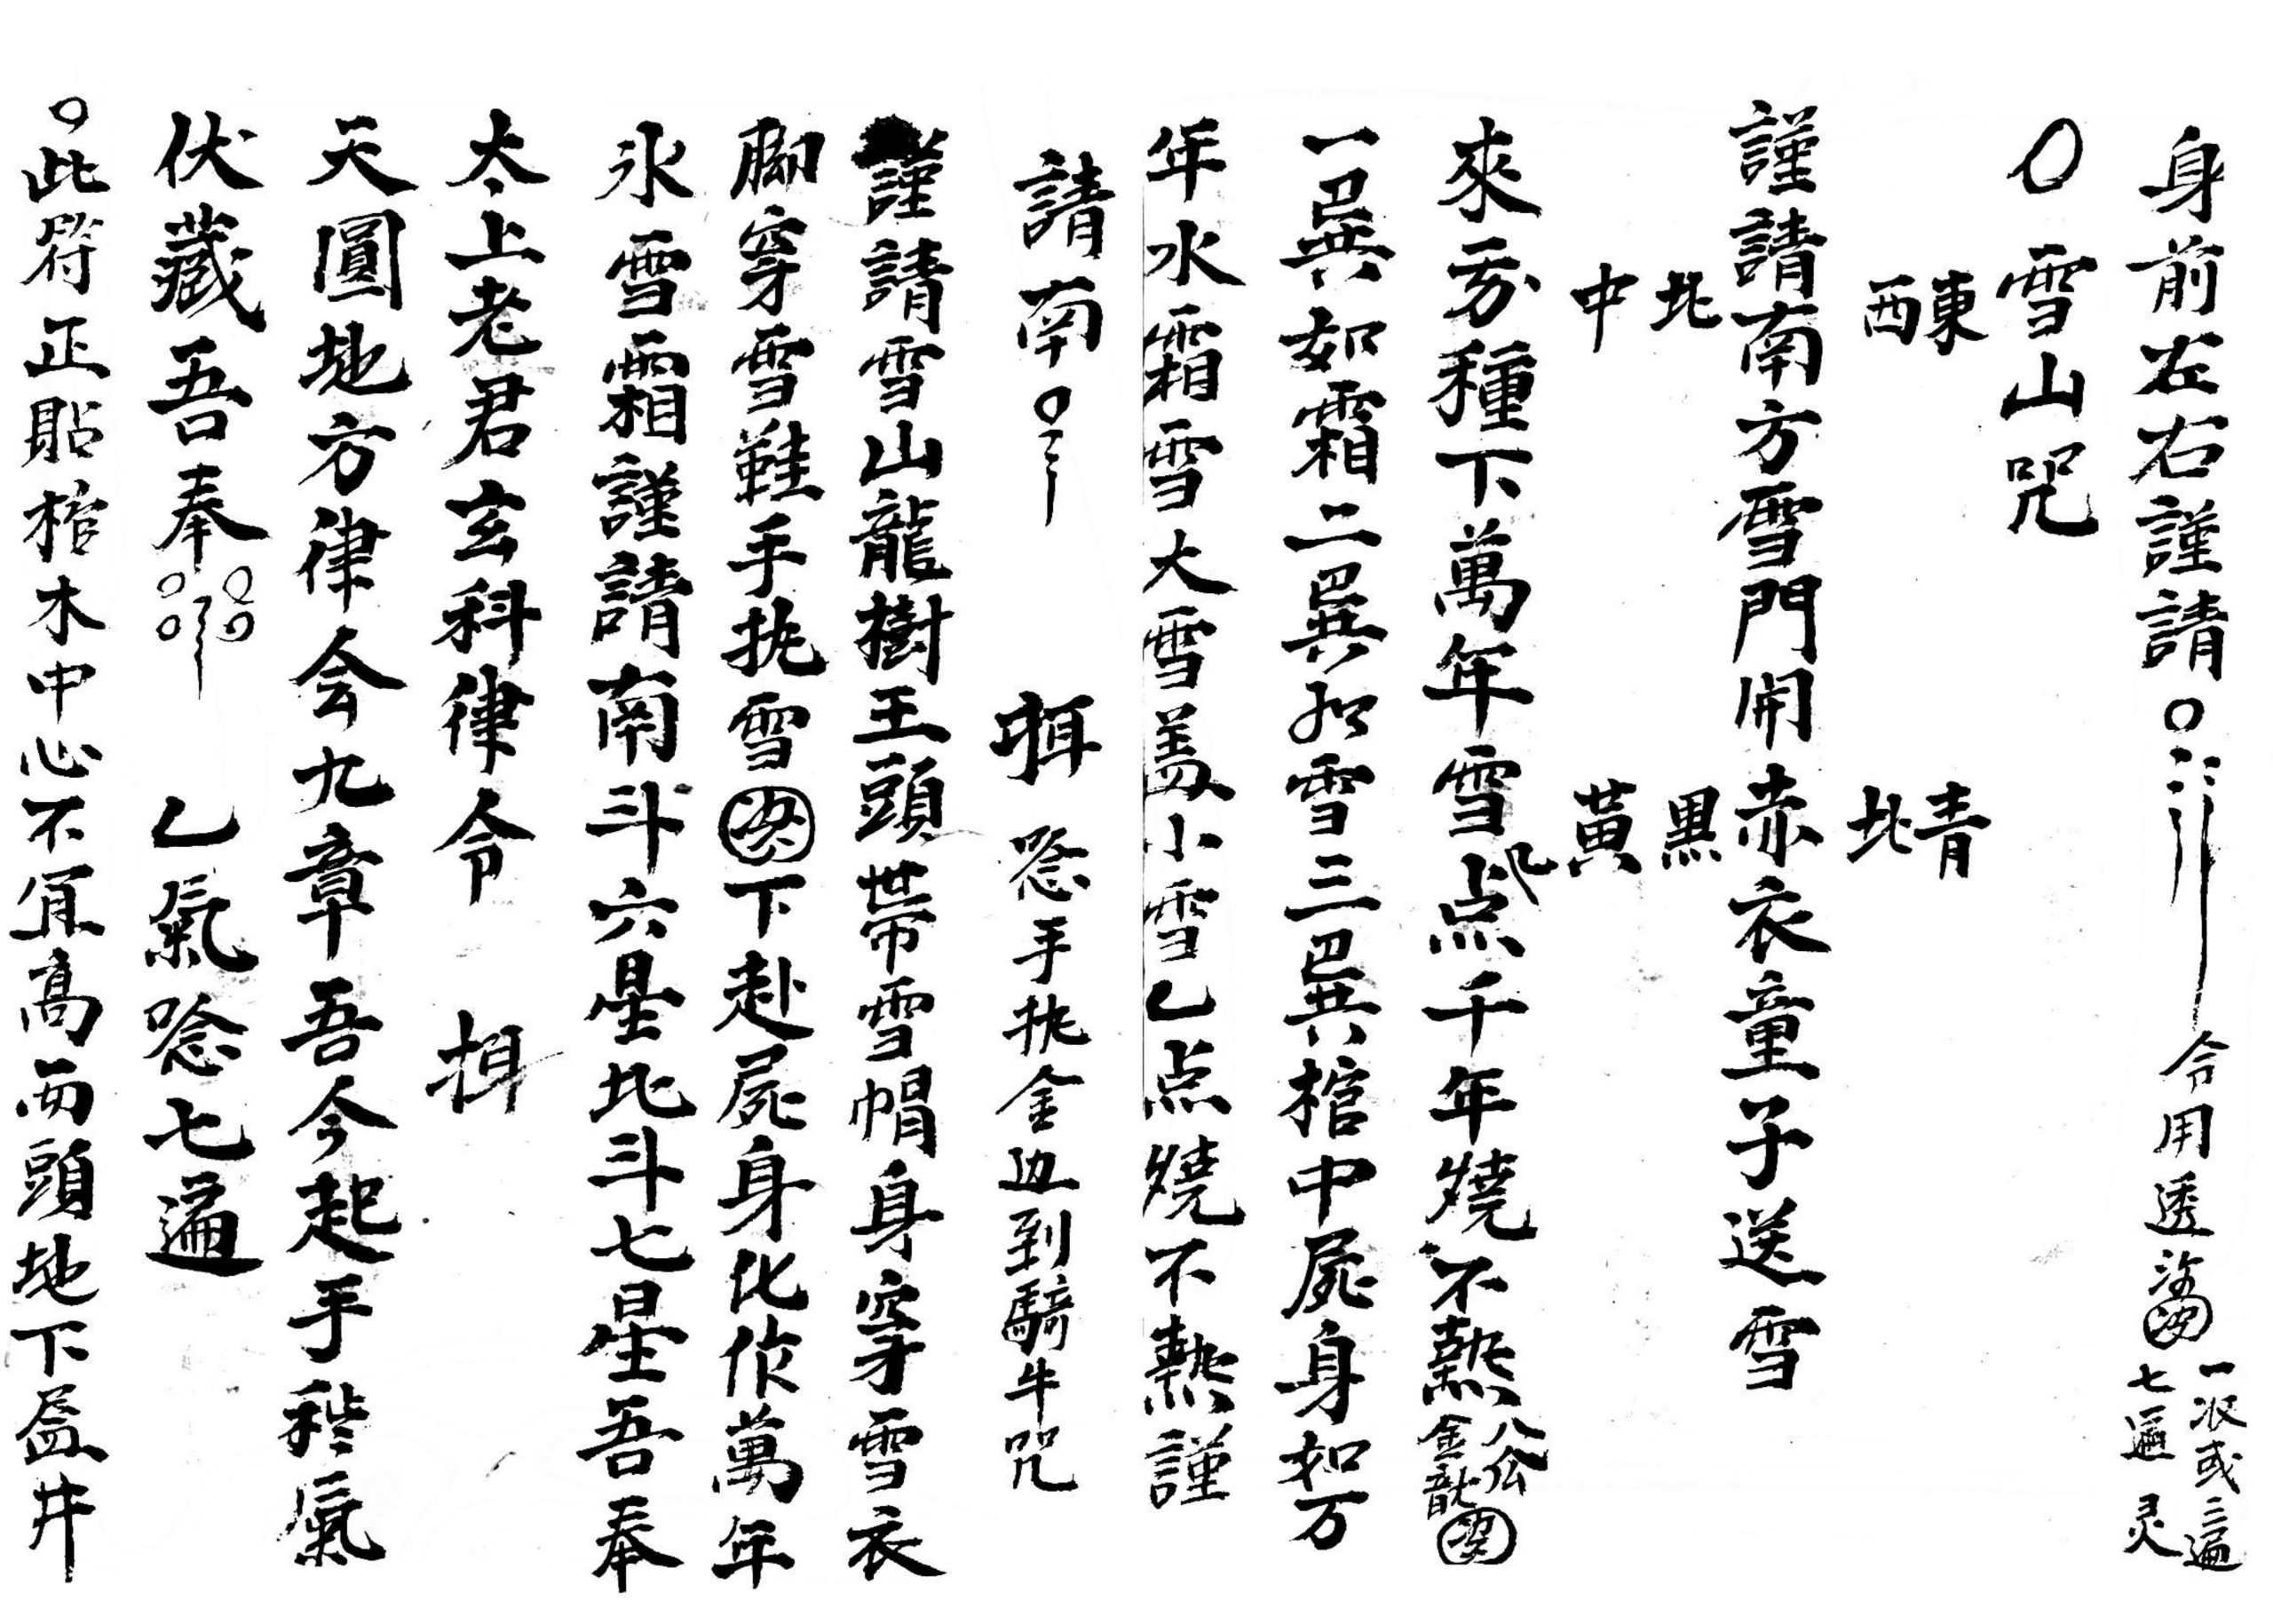 身前左右謹請○令用透 一次或三遍七遍灵
○雪山咒
東 青
西 北
謹請南方雪門開赤衣童子送雪
北 黑
中 黃
來易種下萬年雪点千年燒不熱 公
一巽如霜二巽如雪三巽棺中屍身如万
年水霜雪大雪盖小雪乙点燒不熱謹
請南○ 挕 唸手执金边到騎牛咒
謹請雪山龍樹王頭帶雪帽身穿雪衣
脚穿雪鞋手执雪下赴屍身化作萬年
氷雪霜謹請南斗六星北斗七星吾奉
太上老君玄科律令 挕
天圓地方律令九章吾今起手氣
伏藏吾奉 乙氣唸七遍
○此符正貼棺木中心不宜高两頭地下盖井